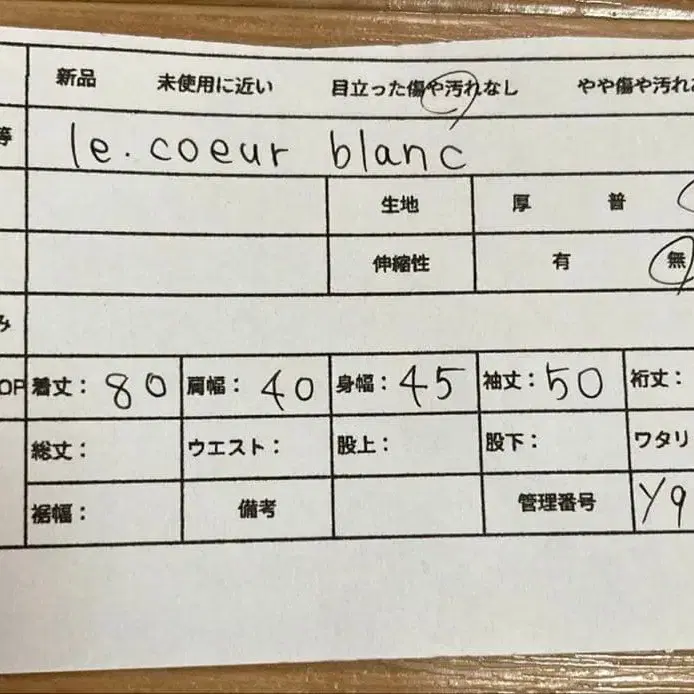 新品 未使用に近い 目立った傷や汚れなし やや傷や汚れあ
等 le.coeur blanc
生地 厚 普
伸縮性 有 無
み
OP 着丈: 80 肩幅: 40 身幅: 45 袖丈: 50 裄丈:
総丈: ウエスト: 股上: 股下: ワタリ
裾幅: 備考 管理番号 Y9